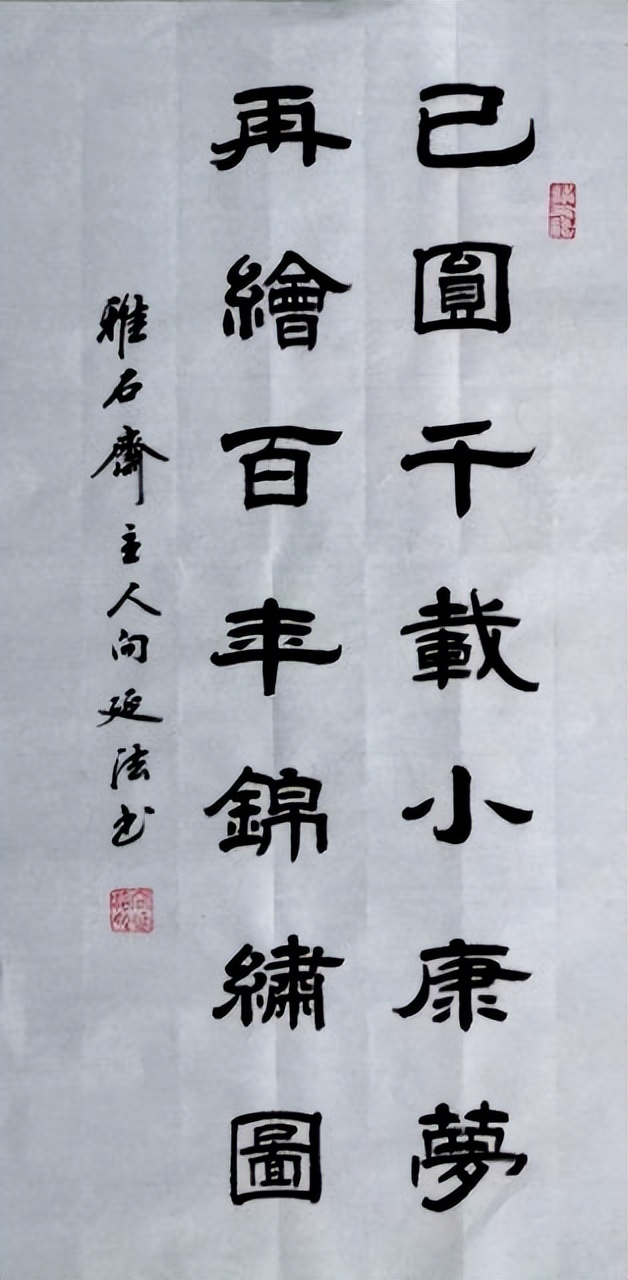 已圓千載小康夢
再繪百年錦繡圖
雅石齋主人向延法书